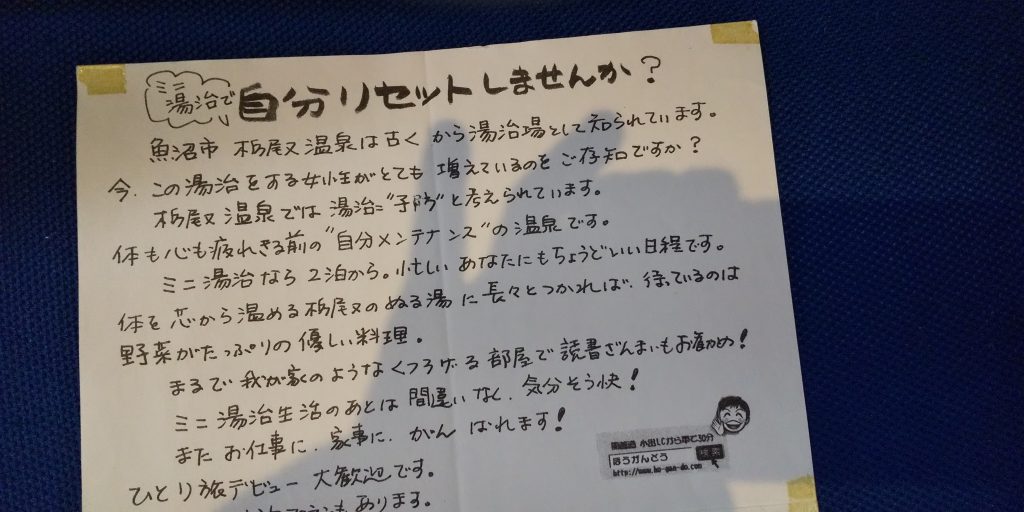 ミニ
湯治で
自分リセットしませんか?
魚沼市 栃尾又温泉は古くから湯治場として知られています。
今、この湯治をする女性がとても増えているのをご存知ですか?
栃尾又温泉では湯治="予防"と考えられています。
体も心も疲れきる前の"自分メンテナンス"の温泉です。
ミニ湯治なら2泊から。忙しいあなたにもちょうどいい日程です。
体を芯から温める栃尾又のぬる湯に長々とつかれば、待っているのは
野菜がたっぷりの優しい料理。
まるで我が家のようなくつろげる部屋で読書ざんまいもお勧め!
ミニ湯治生活のあとは間違いなく、気分そう快!
またお仕事に、家事に、がんばれます!
ひとり旅デビュー大歓迎です。
プランもあります。
関越道 小出I.Cから車で30分
ほうがんどう 検索
http://www.ho-gan-do.com